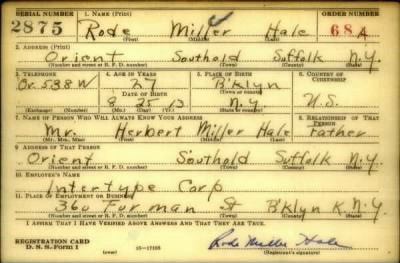 SERIAL NUMBER 1. NAME (Print) ORDER NUMBER
2875 Rode Miller Hale 68A
(First) (Middle) (Last)
2. ADDRESS (Print)
Orient Southold Suffolk N.Y.
(Number and street or R. F. D. number) (Town) (County) (State)
3. TELEPHONE 4. AGE IN YEARS 5. PLACE OF BIRTH 6. COUNTRY OF CITIZENSHIP
Or. 538W 27 B'klyn
DATE OF BIRTH (Town or county)
8 25 13 N.Y. U.S.
(Exchange) (Number) (Mo.) (Day) (Yr.) (State or country)
7. NAME OF PERSON WHO WILL ALWAYS KNOW YOUR ADDRESS 8. RELATIONSHIP OF THAT PERSON
Mr. Herbert Miller Hale Father
(Mr., Mrs., Miss) (First) (Middle) (Last)
9. ADDRESS OF THAT PERSON
Orient Southold Suffolk N.Y.
(Number and street or R. F. D. number) (Town) (County) (State)
10. EMPLOYER'S NAME
Intertype Corp
11. PLACE OF EMPLOYMENT OR BUSINESS
360 Furman St B'klyn K. N.Y.
(Number and street or R. F. D. number) (Town) (County) (State)
I AFFIRM THAT I HAVE VERIFIED ABOVE ANSWERS AND THAT THEY ARE TRUE.
REGISTRATION CARD Rode Miller Hale
D. S. S. Form 1 (over) 16—17105 (Registrant's signature)